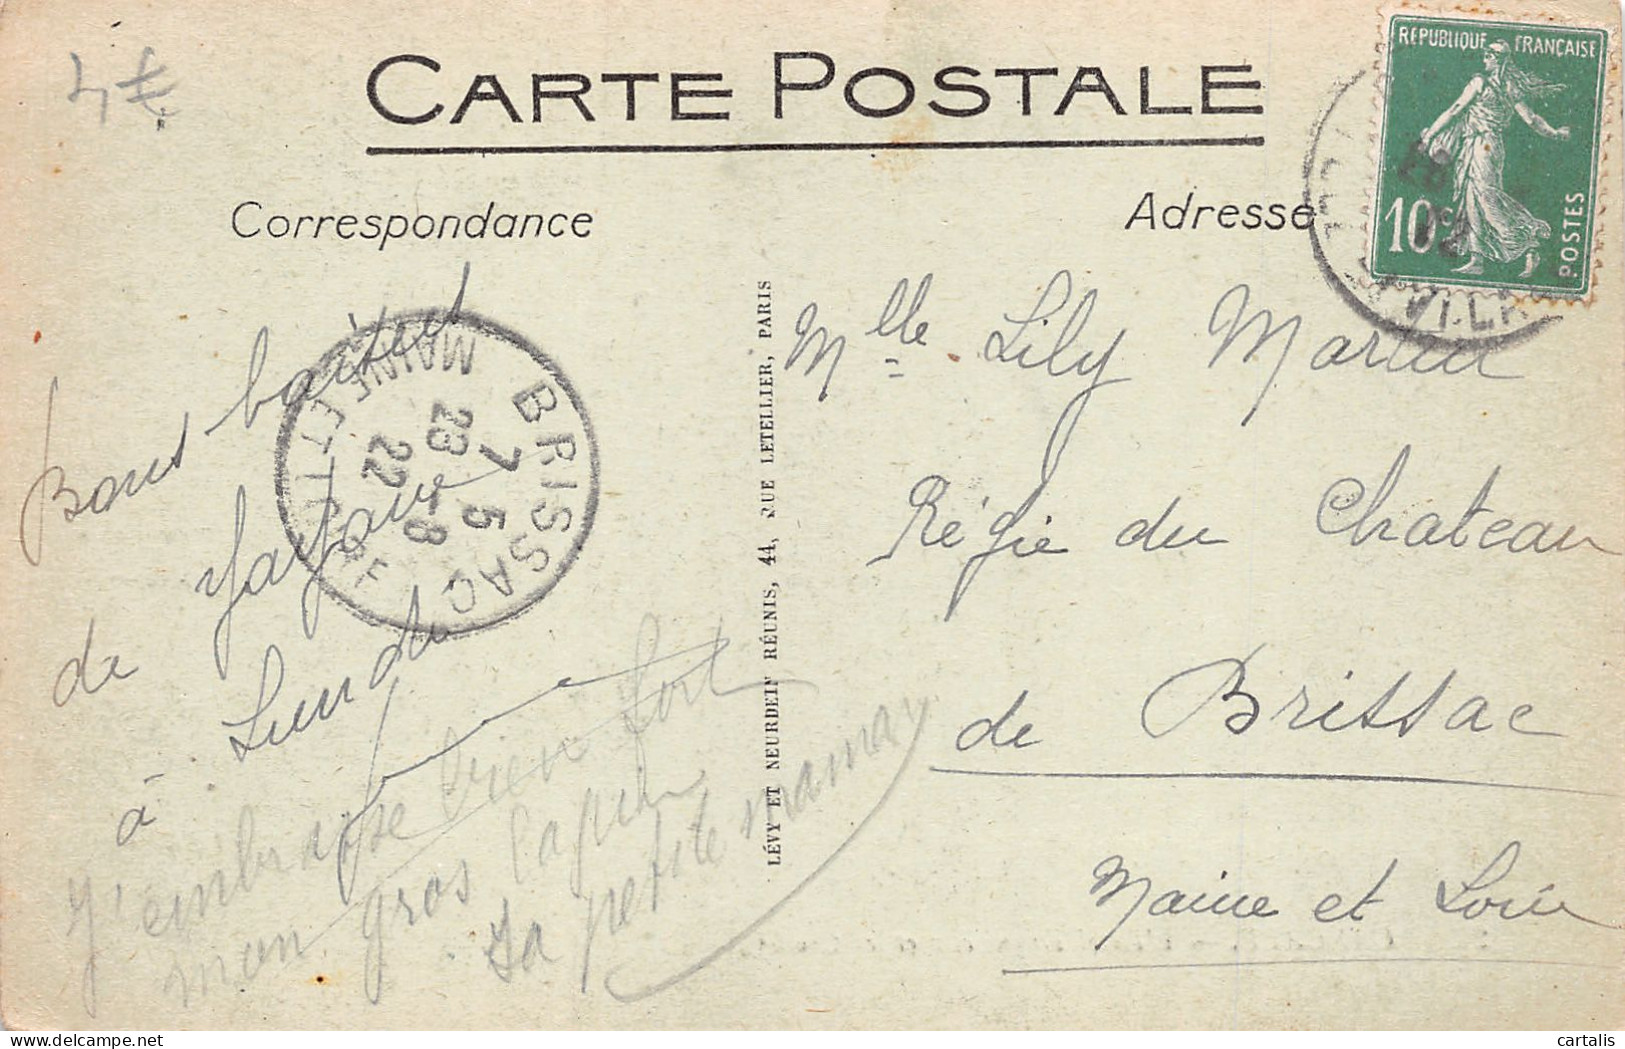 4€
CARTE POSTALE
Correspondance
Adresse
RÉPUBLIQUE FRANÇAISE
10c
POSTES
BRISSAC
MAINE ET LOIRE
7 5
23 - 8
22
Bons baisers
de
à Lundi
J'embrasse bien fort
mon gros lapin
Ta petite maman
LÉVY ET NEURDEIN RÉUNIS, 44, RUE LETELLIER, PARIS
Mlle Lily Martin
Régie du Chateau
de Brissac
Maine et Loire
cartalis